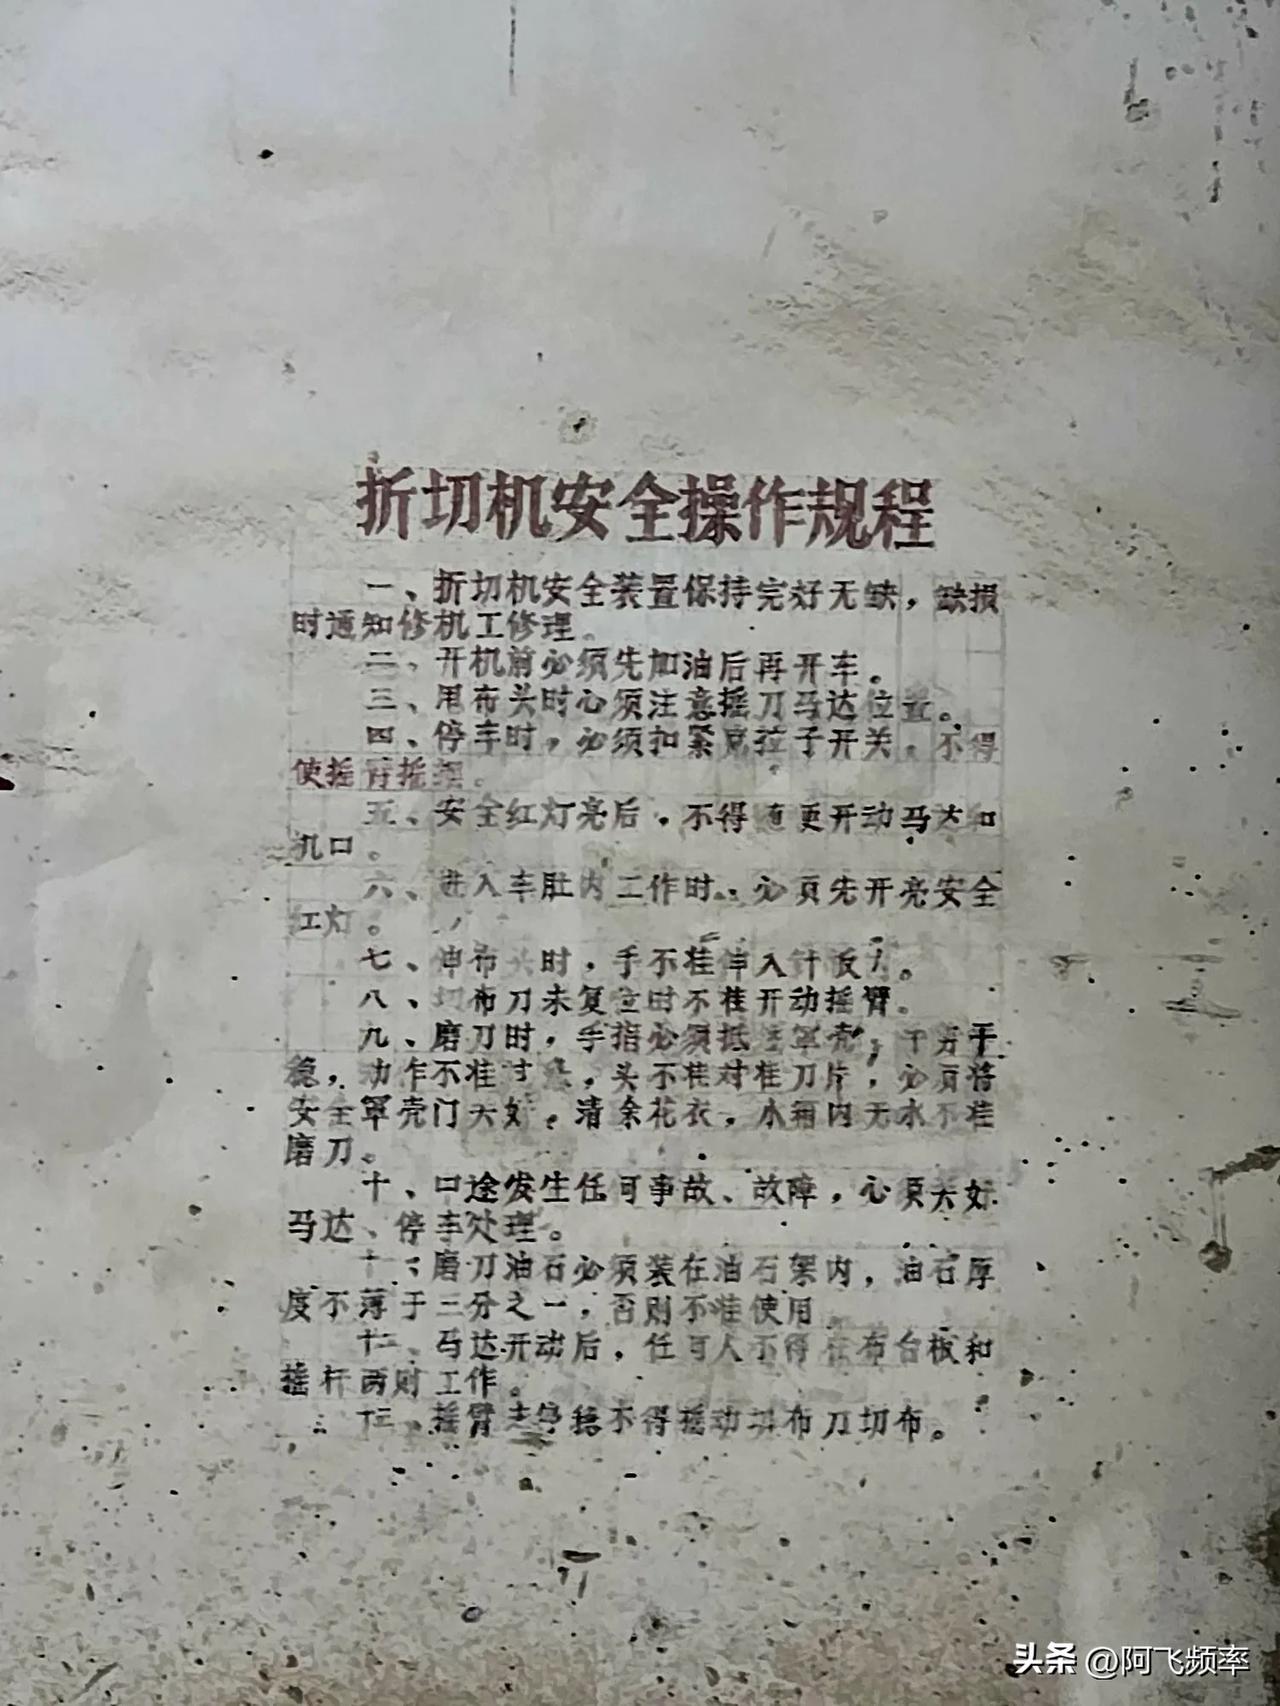 折切机安全操作规程
一、折切机安全装置保持完好无缺，缺损
时通知修机工修理。
二、开机前必须先加油后再开车。
三、甩布头时必须注意摇刀马达位置。
四、停车时，必须扣紧 拉子开关，不得
使摇臂摇摆。
五、安全红灯亮后，不得随更开动马达和
机口。
六、进入车肚内工作时，必须先开亮安全
红灯。
七、伸布头时，手不准伸入针板 。
八、切布刀未复位时不准开动摇臂。
九、磨刀时，手指必须抵 罩壳， 平
稳，动作不准 ，头不准对准刀片，必须将
安全罩壳门关好，清余花衣，水箱内无水不准
磨刀。
十、口途发生任何事故、故障，必须关好
马达、停车处理。
十一、磨刀油石必须装在油石架内，油石厚
度不薄于三分之一，否则不准使用
十二、马达开动后，任何人不得在布台板和
摇杆两则工作。
十三、摇臂 不得摇动切布刀切布。
头条 @阿飞频率